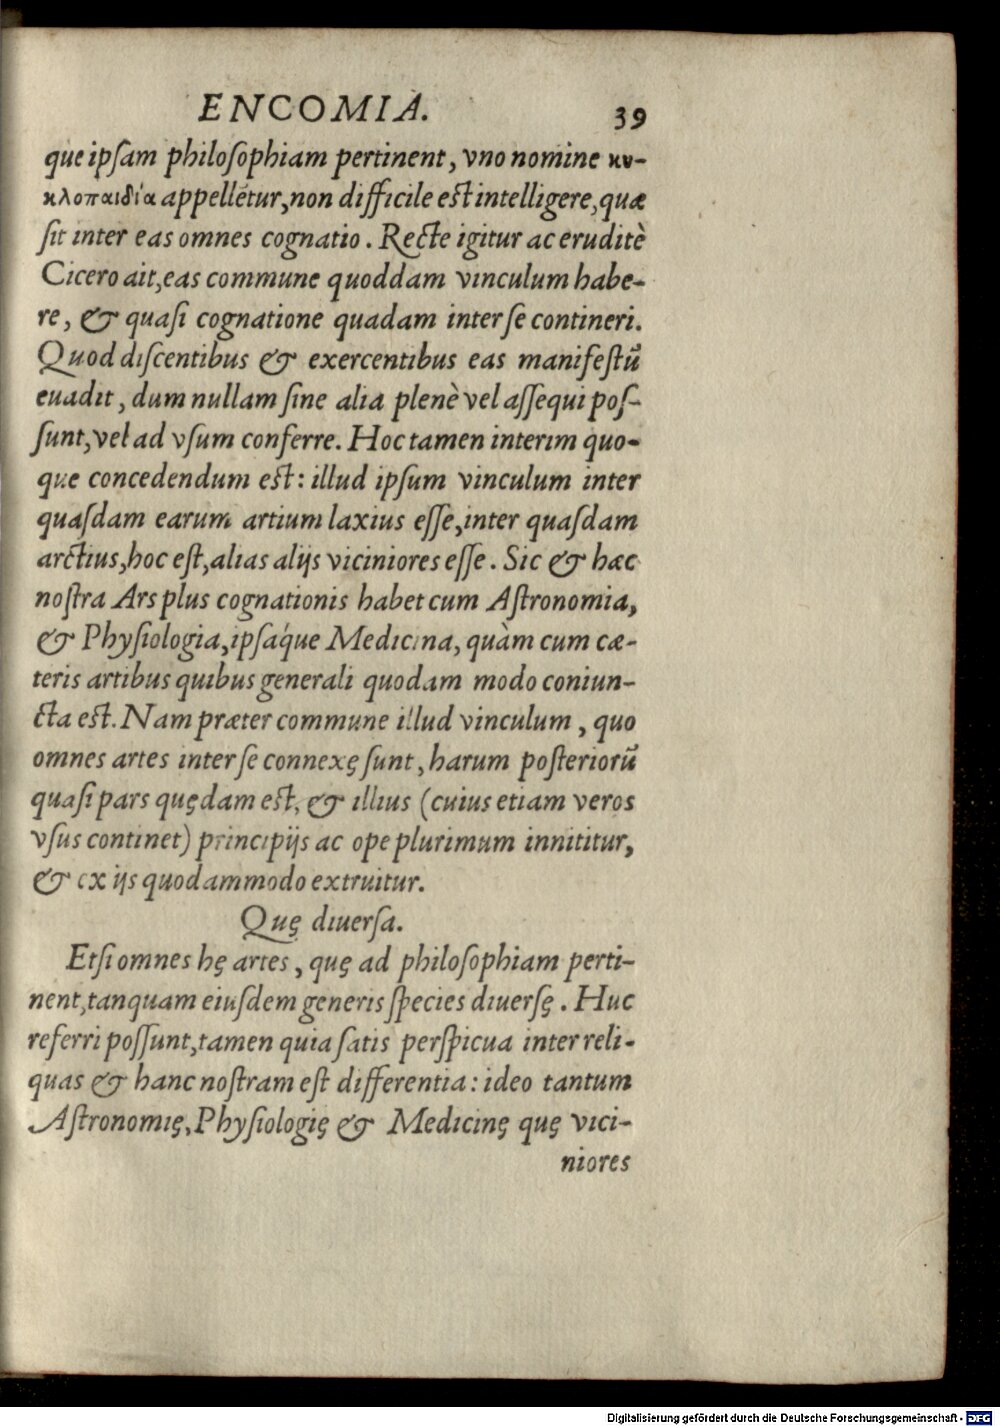 ENCOMIA. 39
que ipſam philoſophiam pertinent, vno nomine κυ-
κλοπαιδία appellẽtur, non difficile eſt intelligere, quæ
ſit inter eas omnes cognatio. Recte igitur ac eruditè
Cicero ait, eas commune quoddam vinculum habe-
re, & quaſi cognatione quadam inter ſe contineri.
Quod diſcentibus & exercentibus eas manifeſtū
euadit, dum nullam ſine alia plenè vel aſſequi poſ-
ſunt, vel ad vſum conferre. Hoc tamen interim quo-
que concedendum eſt: illud ipſum vinculum inter
quaſdam earum artium laxius eſſe, inter quaſdam
arctius, hoc eſt, alias alijs viciniores eſſe. Sic & hæc
noſtra Ars plus cognationis habet cum Aſtronomia,
& Phyſiologia, ipſáque Medicina, quàm cum cæ-
teris artibus quibus generali quodam modo coniun-
cta eſt. Nam præter commune illud vinculum, quo
omnes artes inter ſe connexę ſunt, harum poſteriorū
quaſi pars quędam eſt, & illius (cuius etiam veros
vſus continet) principijs ac ope plurimum innititur,
& ex ijs quodammodo extruitur.
Quę diuerſa.
Etſi omnes hę artes, quę ad philoſophiam perti-
nent, tanquam eiuſdem generis ſpecies diuerſę. Huc
referri poſſunt, tamen quia ſatis perſpicua inter reli-
quas & hanc noſtram eſt differentia: ideo tantum
Aſtronomię, Phyſiologię & Medicinę quę vici-
niores
Digitalisierung gefördert durch die Deutsche Forschungsgemeinschaft - DFG